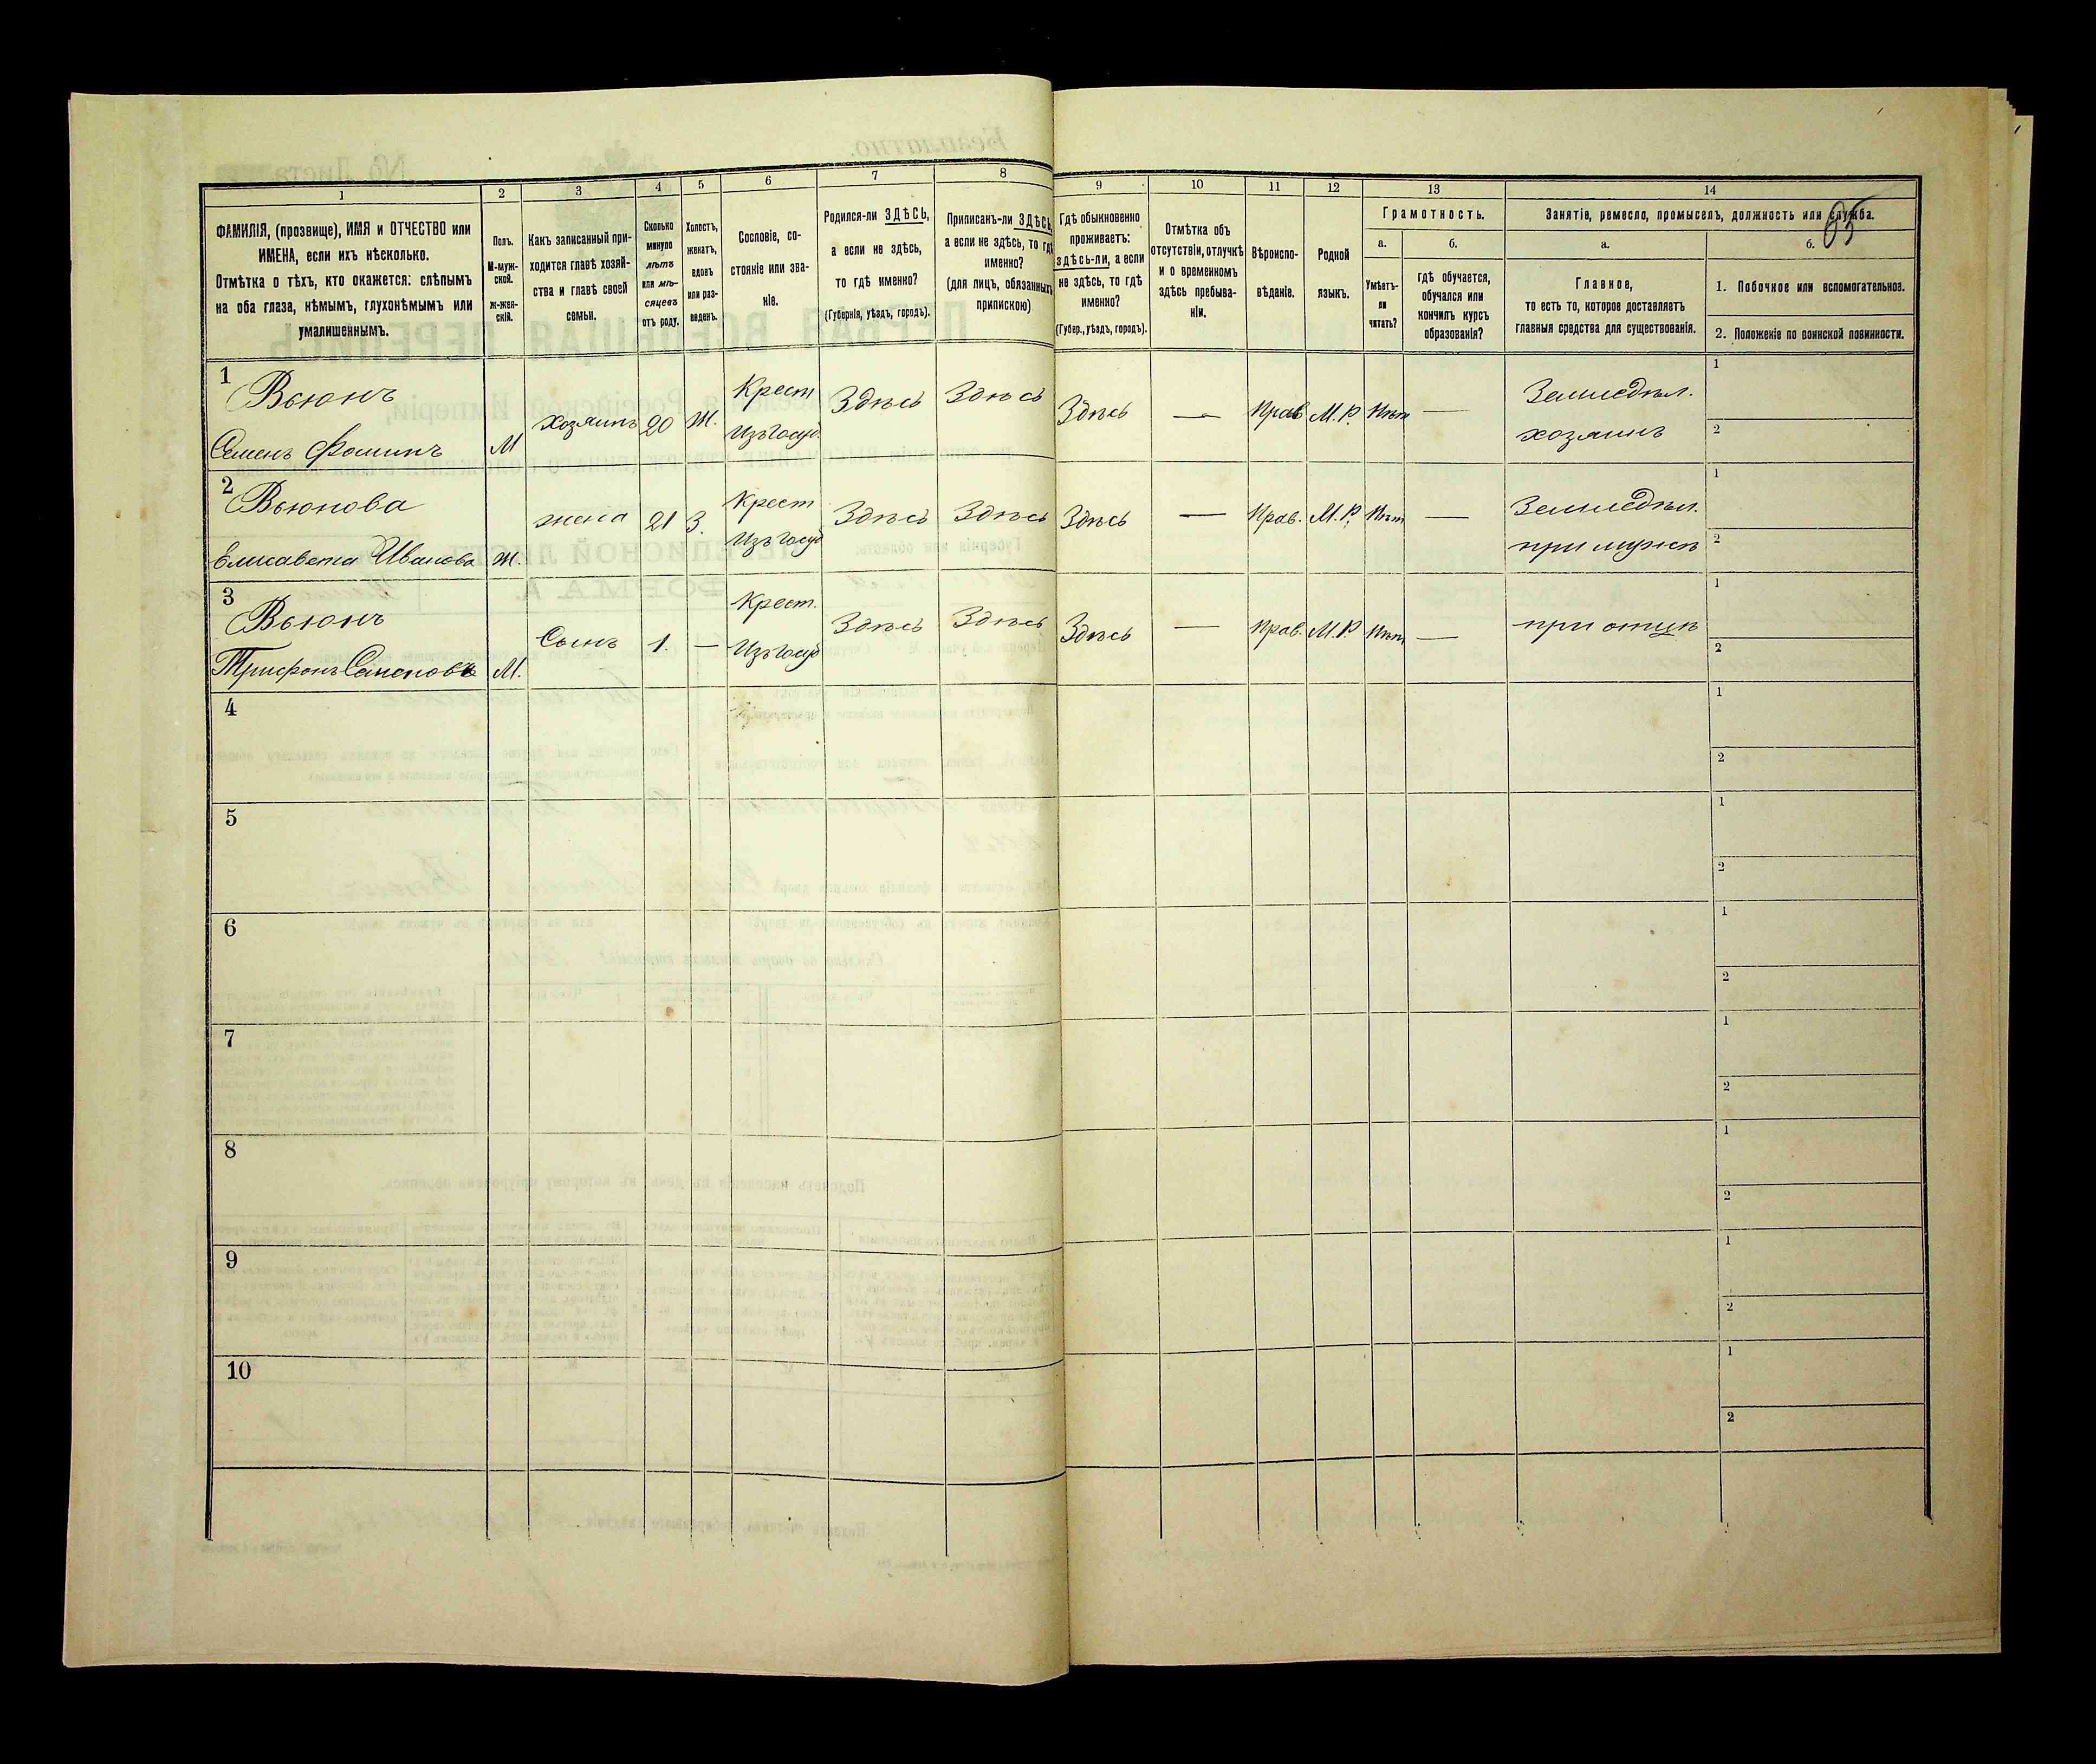 65
1
2
3
4
5
6
7
8
9
10
11
12
13
14
ФАМИЛІЯ, (прозвище), ИМЯ и ОТЧЕСТВО или
ИМЕНА, если ихъ нѣсколько.
Отмѣтка о тѣхъ, кто окажется: слѣпымъ
на оба глаза, нѣмымъ, глухонѣмымъ или
умалишеннымъ.
Полъ.
М-муж-
ской.
Ж-жен-
скій.
Какъ записанный при-
ходится главѣ хозяй-
ства и главѣ своей
семьи.
Сколько
минуло
лѣтъ
или мѣ-
сяцевъ
отъ роду.
Холостъ,
женатъ,
вдовъ
или раз-
веденъ.
Сословіе, со-
стояніе или зва-
ніе.
Родился-ли ЗДѢСЬ,
а если не здѣсь,
то гдѣ именно?
(Губернія, уѣздъ, городъ).
Приписанъ-ли ЗДѢСЬ,
а если не здѣсь, то гдѣ
именно?
(для лицъ, обязанныхъ
припискою)
Гдѣ обыкновенно
проживаетъ:
здѣсь-ли, а если
не здѣсь, то гдѣ
именно?
(Губер., уѣздъ, городъ).
Отмѣтка объ
отсутствіи, отлучкѣ
и о временномъ
здѣсь пребыва-
ніи.
Вѣроиспо-
вѣданіе.
Родной
языкъ.
Грамотность.
а.
Умѣетъ-
ли
читать?
б.
Гдѣ обучается,
обучался или
кончилъ курсъ
образованія?
Занятіе, ремесло, промыселъ, должность или служба.
а.
Главное,
то есть то, которое доставляетъ
главныя средства для существованія.
б.
1. Побочное или вспомогательное.
2. Положеніе по воинской повинности.
1
Вьюнъ
Семенъ Фоминъ
М
хозяинъ
20
Ж.
Крест
Изъ госуд.
Здѣсь
Здѣсь
Здѣсь
—
Прав
М. Р.
Нѣт
—
Земледѣл.
хозяинъ
1
2
2
Вьюнова
Елисавета Иванова
Ж.
жена
21
З.
Крест
Изъ госуд
Здѣсь
Здѣсь
Здѣсь
—
Прав.
М. Р.
Нѣт
—
Земледѣл.
при мужѣ
1
2
3
Вьюнъ
Трифонъ Семеновъ
М.
Сынъ
1.
—
Крест.
Изъ госуд
Здѣсь
Здѣсь
Здѣсь
—
Прав.
М. Р.
Нѣт
—
при отцѣ
1
2
4
1
2
5
1
2
6
1
2
7
1
2
8
1
2
9
1
2
10
1
2